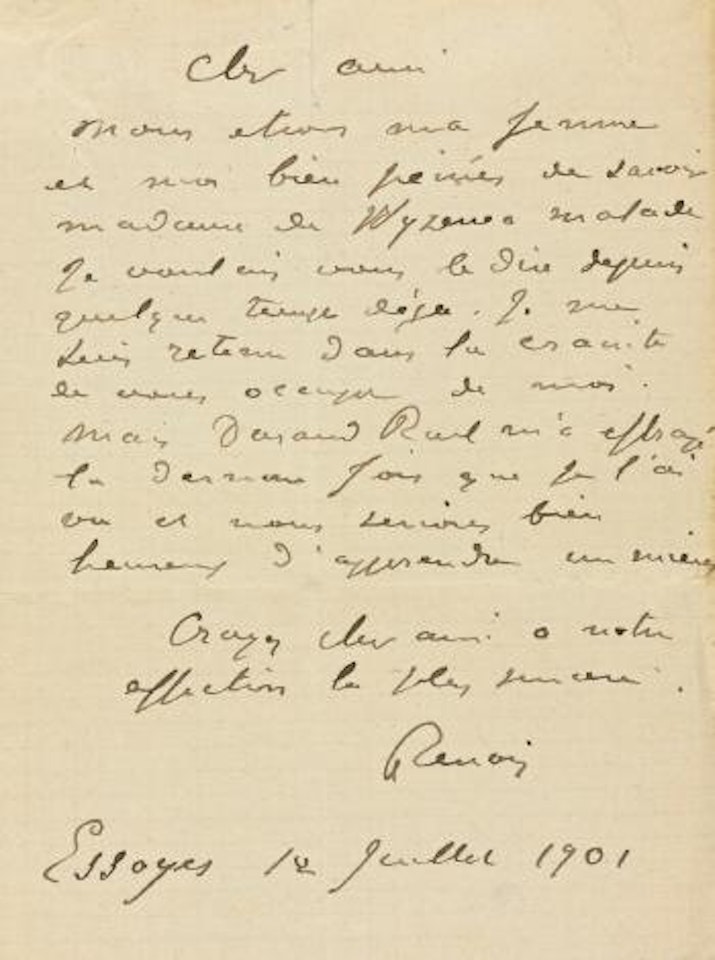 Cher ami
Nous etions ma femme
et moi bien peinés de savoir
madame de Wyzewa malade
Je voulais vous le dire depuis
quelque temps déja. Je me
suis retenu dans la crainte
de vous occuper de moi.
Mais Durand Ruel m'a effrayé
la derniere fois que je l'ai
vu et nous serions bien
heureux d'apprendre un mieux
Croyez cher ami a notre
affection la plus sincere.
Renoir
Essoyes 12 Juillet 1901